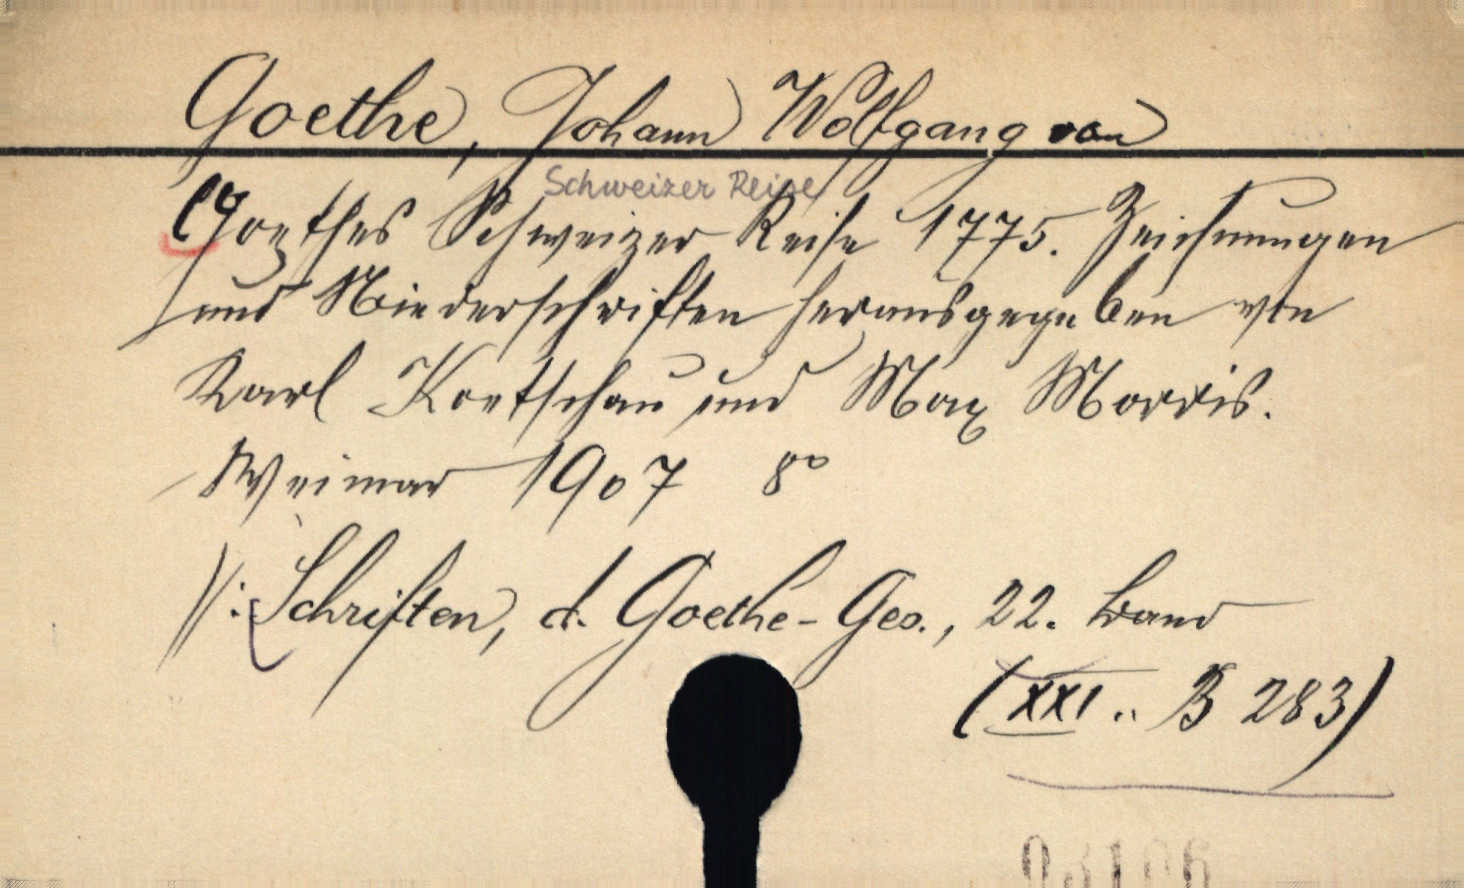 Goethe, Johann Wolfgang von
Schweizer Reise
Goethes Schweizer Reise 1775. Zeichnungen
und Niederschriften herausgegeben von
Karl Koetschau und Max Morris.
Weimar 1907 8°
//: Schriften, d. Goethe-Ges., 22. Band
(XXI.. B 283)